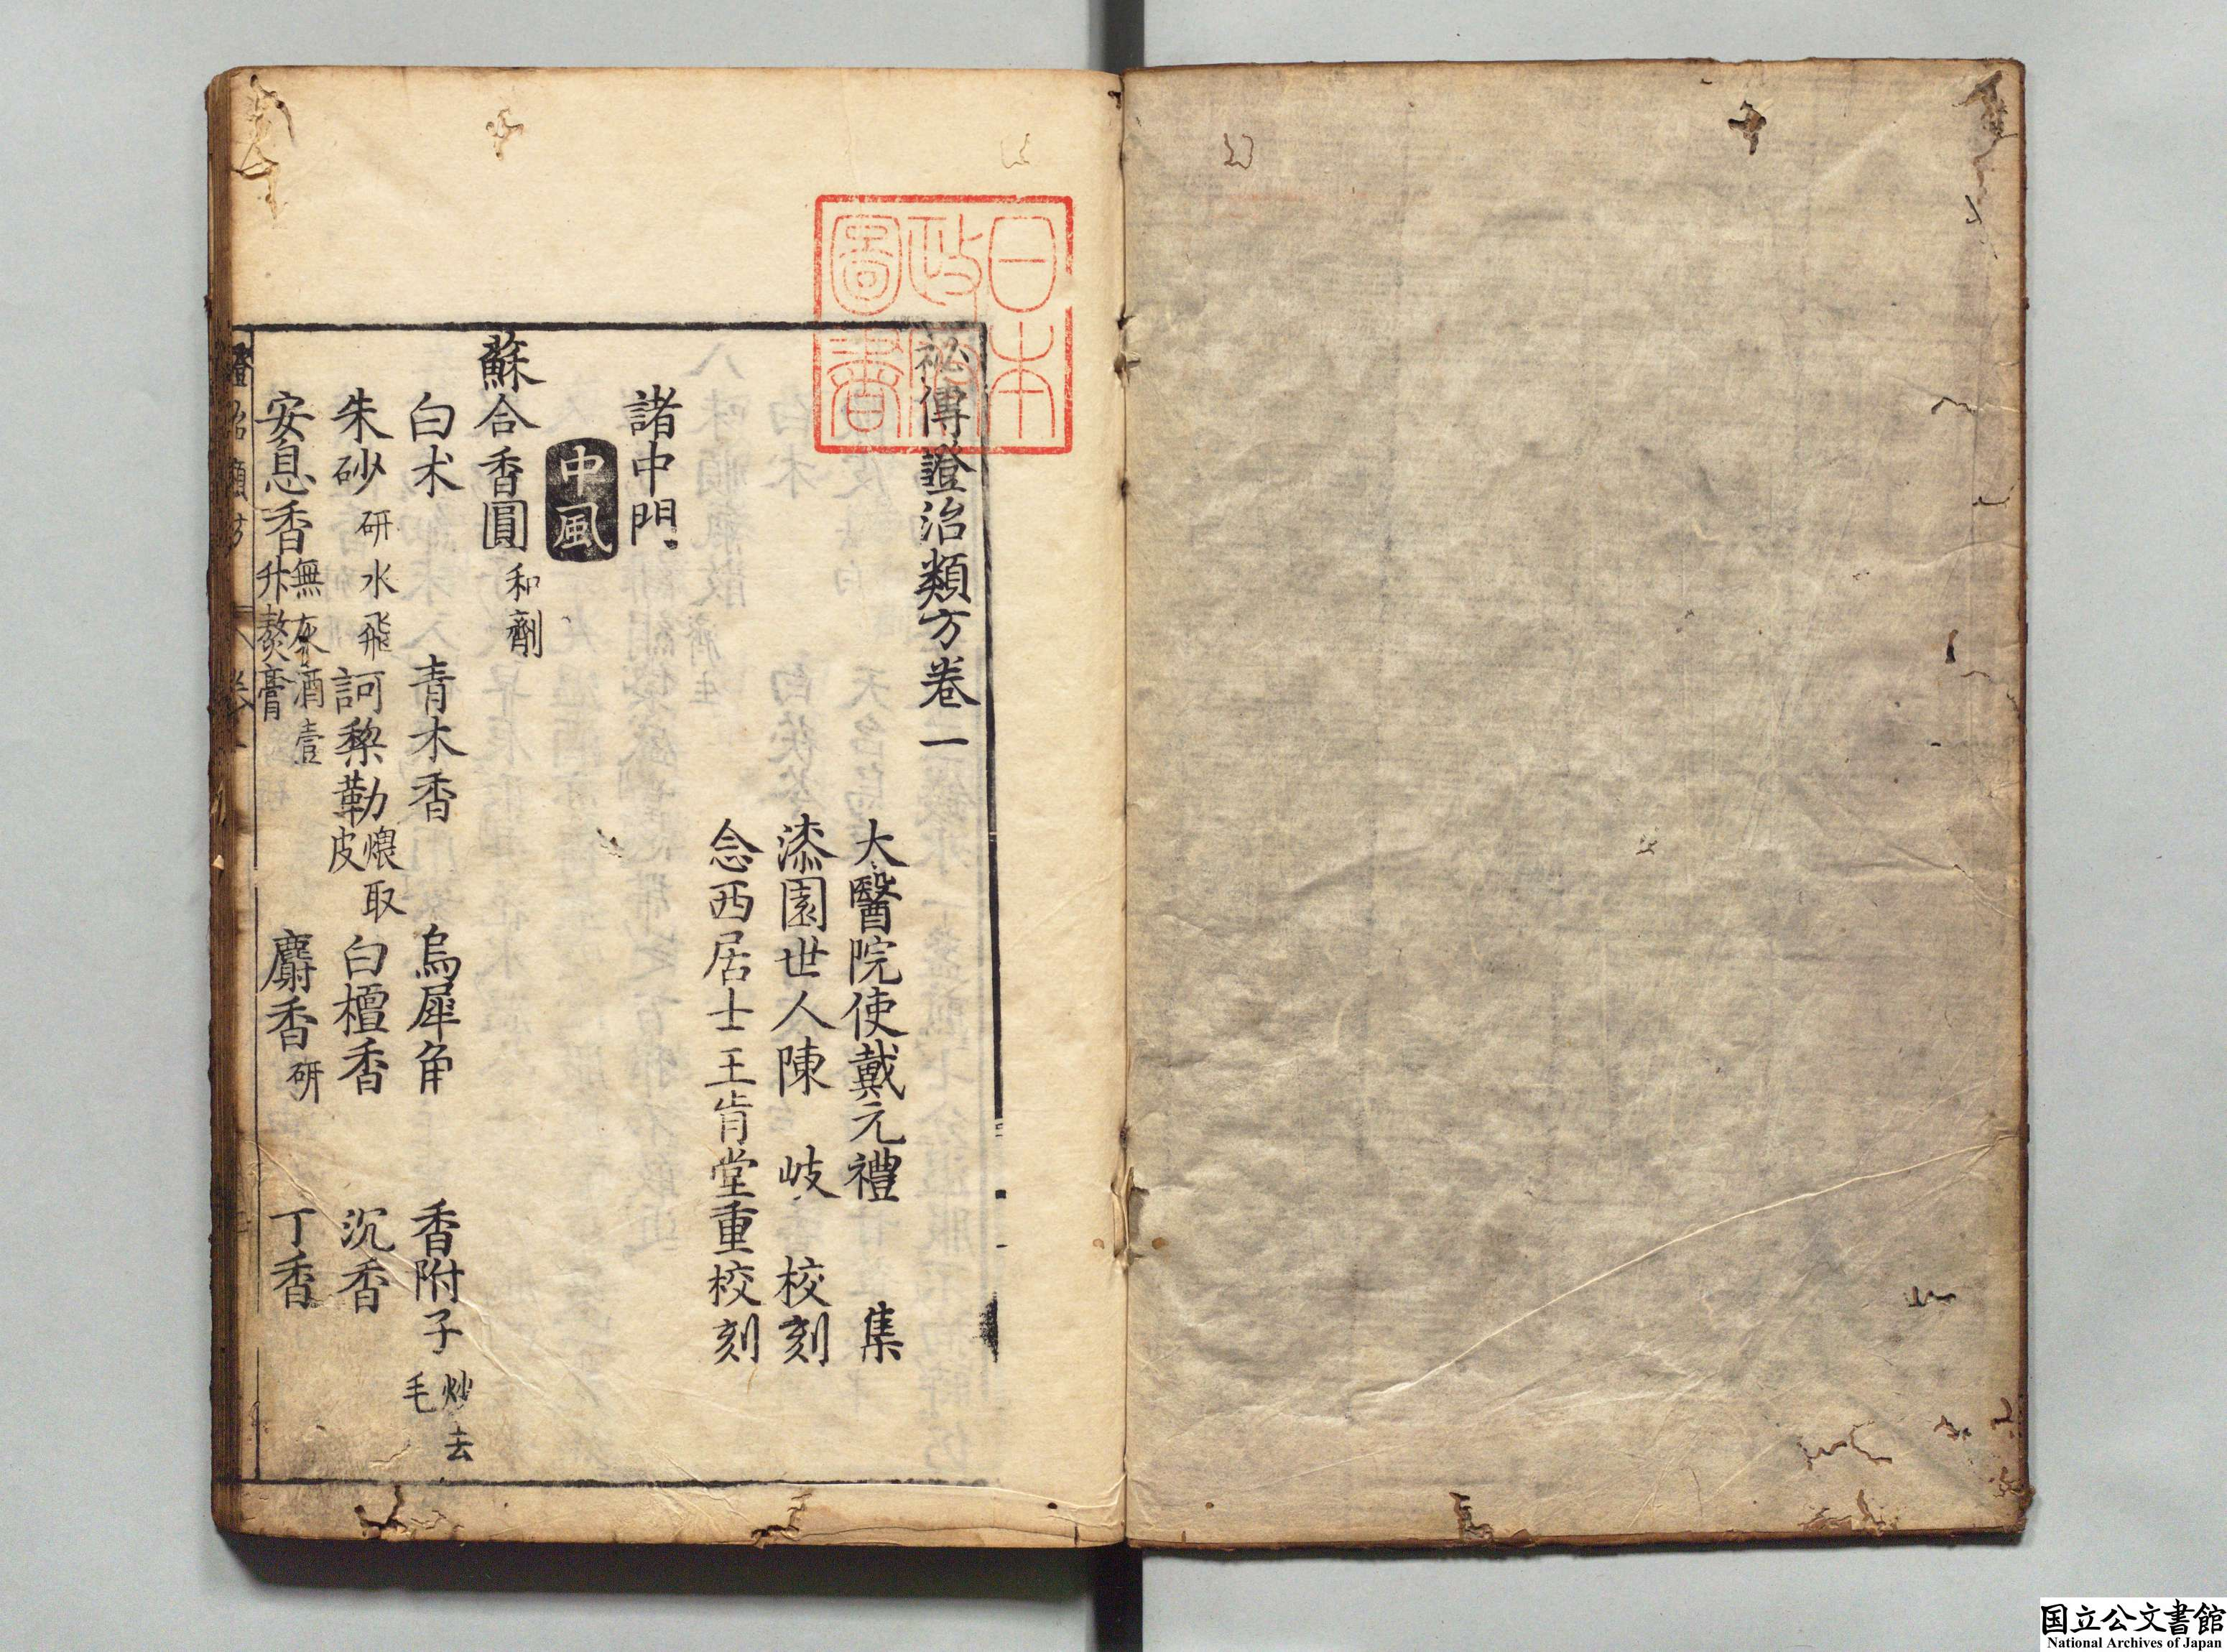 日本
政府
圖書
祕傳證治類方卷一
大醫院使戴元禮 集
漆園世人陳 岐 校刻
念西居士王肯堂重校刻
諸中門
中風
蘇合香圓 和劑
白朮 青木香 烏犀角 香附子 炒去毛
朱砂 研水飛 訶黎勒 煨取皮 白檀香 沉香
安息香 無灰酒壹升熬膏 麝香 研 丁香
證治類方 卷一
国立公文書館
National Archives of Japan